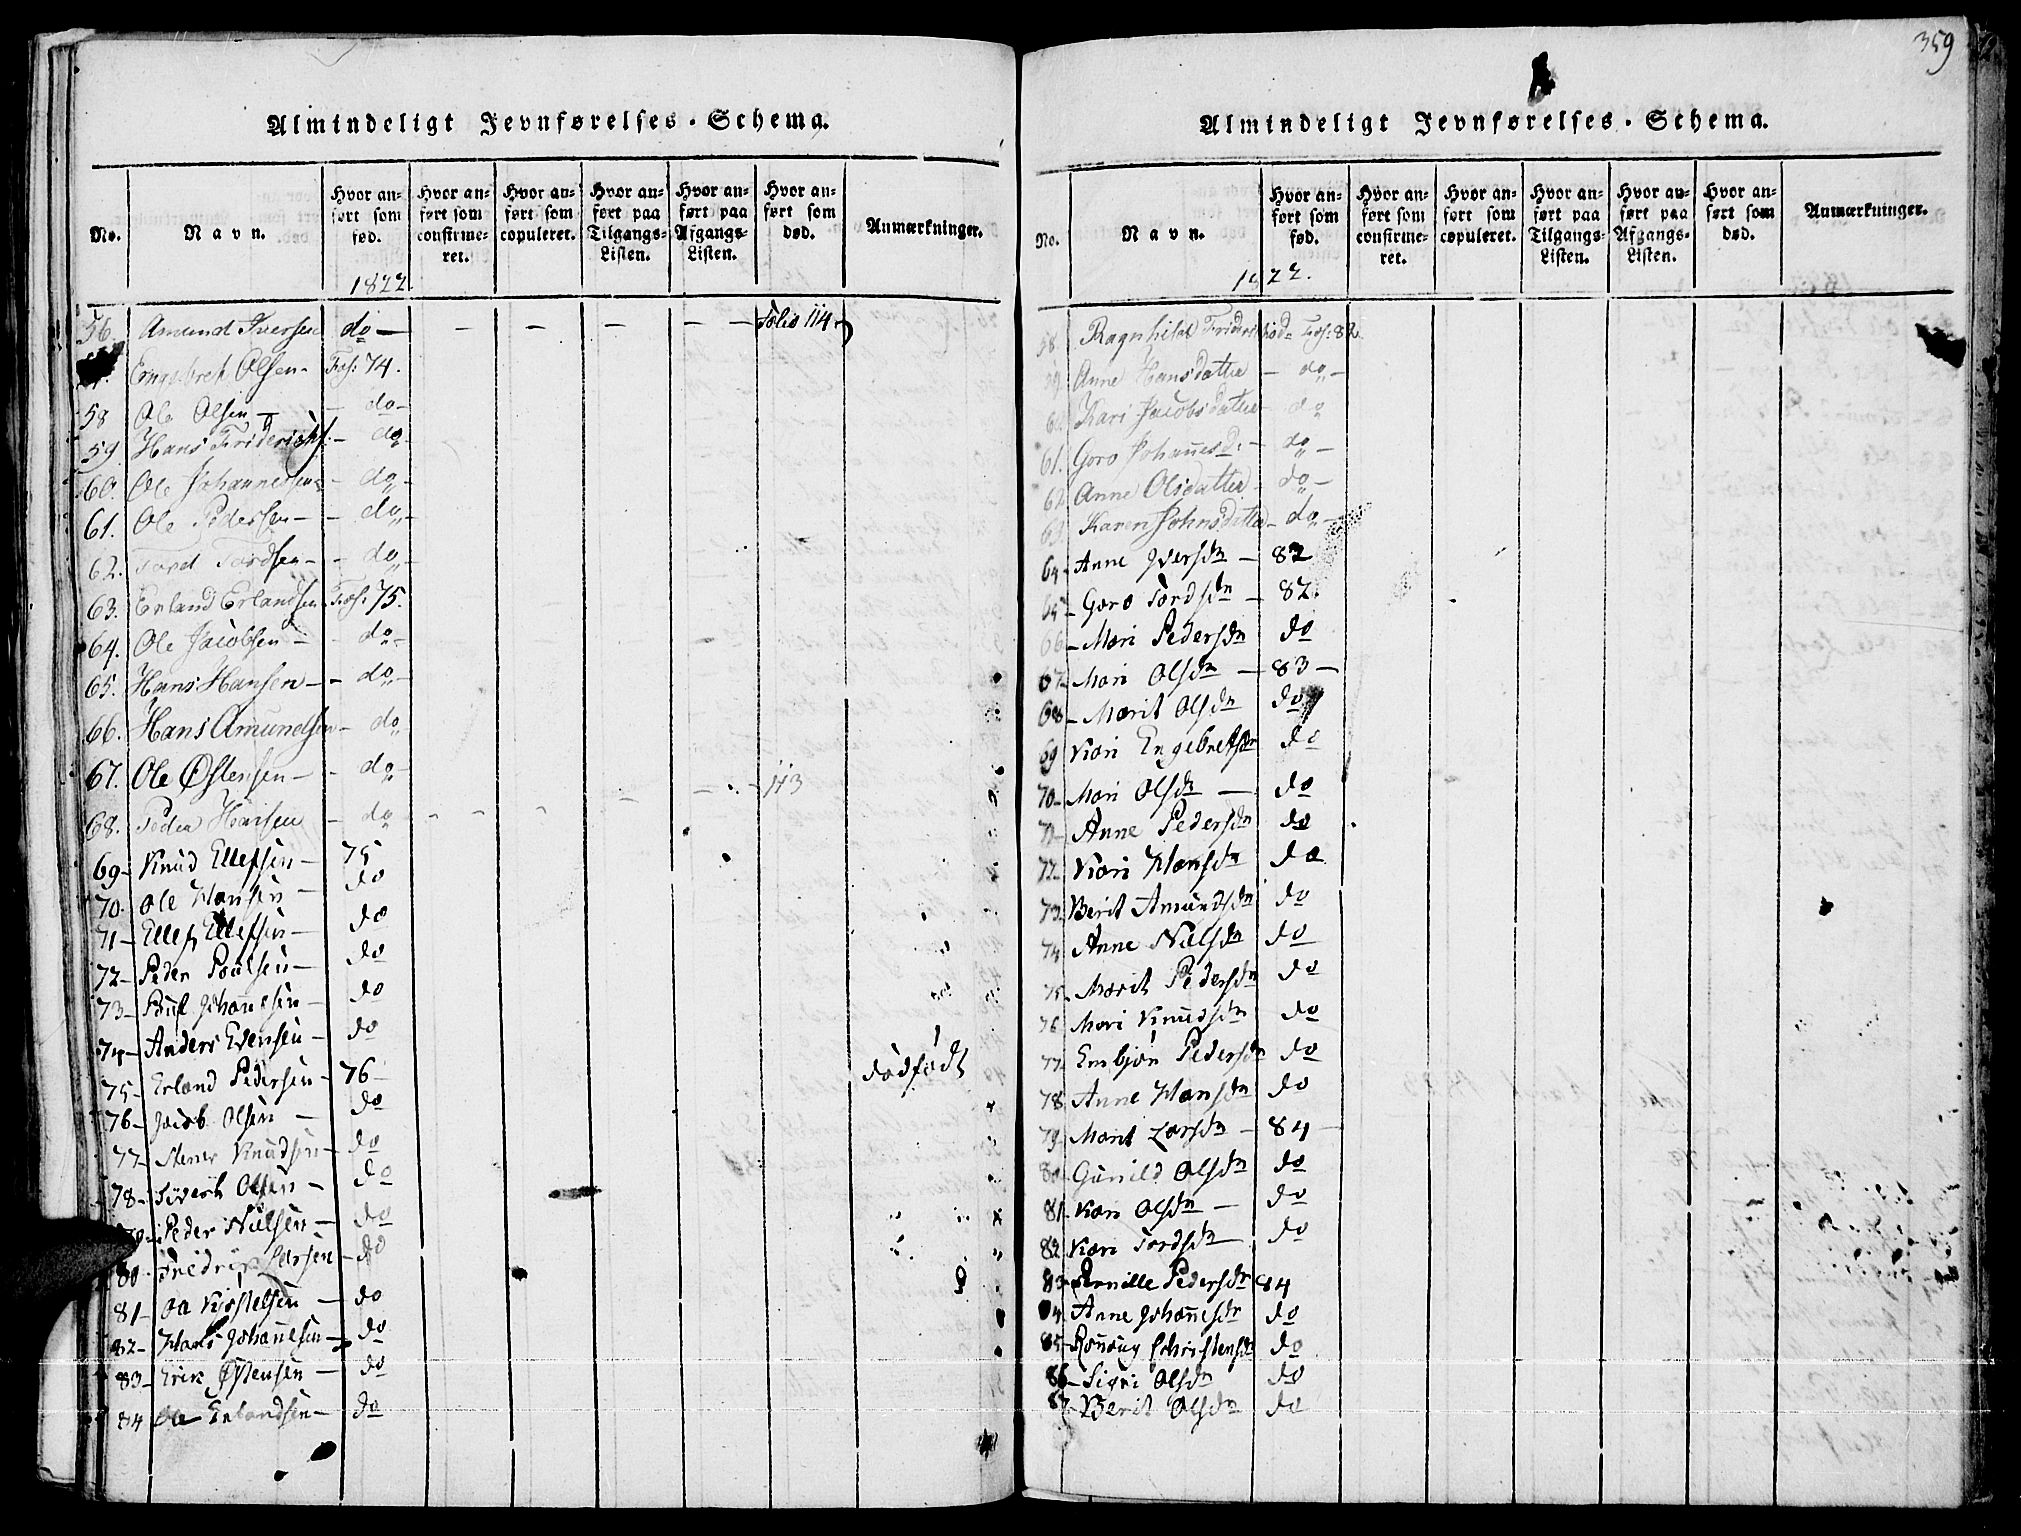 359
Almindeligt Jevnførelses-Schema.
No. Navn. Hvor anført som fød. Hvor anført som confirmeret. Hvor anført som copuleret. Hvor anført paa Tilgangs-Listen. Hvor anført paa Afgangs-Listen. Hvor anført som død. Anmærkninger.
1822
56. Amund Iversen do — — — — — — Folio 114
Engebret Olsen - Fol: 74.
58 Ole Olsen - do -
59. Hans Friderichs: - do
60. Ole Johannessen - do -
61. Ole Pedersen - - do -
62. Tord Tordsen - - do -
63. Erland Erlandsen Fol: 75.
64. Ole Jacobsen - - do -
65. Hans Hansen - - do -
66. Hans Amundsen - do
67. Ole Østensen - - do - 113
68. Peder Hansen - do
69 - Knud Ellefsen - 75
70. Ole Hansen - do
71 - Ellef Ellefsen - do
72 - Peder Poulsen - do
73 - Poul Johanesen - do
74 - Anders Evensen - do
75 - Erland Pedersen - 76 - dødfødt
76 - Jacob Olsen - do
77 - Knudsen - do
78 - Sivert Olsen - do
Peder Nielsen - do
80 Fredrik Larsen - do
81 - Ole Kjostelsen - do
82 - Hans Johanesen - do
83 - Erik Østensen - do
84 Ole Erlandsen - do
Almindeligt Jevnførelses-Schema.
No. Navn. Hvor anført som fød. Hvor anført som confirmeret. Hvor anført som copuleret. Hvor anført paa Tilgangs-Listen. Hvor anført paa Afgangs-Listen. Hvor anført som død. Anmærkninger.
1822.
58 Ragnhild Fol: 82
59. Anne Hansdatter - do -
60. Kari Jacobsdatter - do
61. Goro Johanesd: - do -
62. Anne Olsdatter - do -
63. Karen Johnsdatter - do -
64 - Anne Iversdr - 82
65 - Goro Tordsdr - 82.
66 - Mari Pedersdr do
67 - Mari Olsdr - 83 -
68 - Marit Olsdr do
69 Kari Engebretsdr do
70 - Mari Olsdr - do
71 - Anne Pedersdr do
72 - Kari Hansdr do
73 - Berit Amundsdr do
74 - Anne Nielsdr do
75 - Marit Pedersdr do
76 Mari Knudsdr do
77 - Embjør Pedersdr do
78. Anne Hansdr do
79 - Marit Larsdr - 84 -
80 - Gunild Olsdr do
81 - Kari Olsdr - do
82 Kari Tordsdr do
83 - Pernille Pedersdr 84
84 Anne Johanesdr do
85 - Christensdr do
86 - Sigri Olsdr do
87 Berit Olsdr do